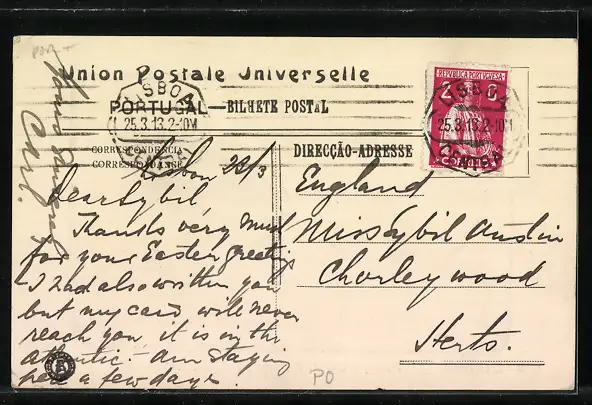 Union Postale Universelle
PORTUGAL—BILHETE POSTAL
CORRESPONDENCIA
CORRESPONDANCE
DIRECÇÃO-ADRESSE
LISBOA
25.3.13.2-10M
LISBOA
25.3.13.2-10M
REPUBLICA PORTUGUESA
CORREIO
Lisbon 23/3
Dear Sybil
Thanks very much
for your Easter greeting
I had also written you
but my card will never
reach you, it is in the
Atlantic. Am staying
here a few days.
England
Miss Sybil Austin
Chorleywood
Herts.
PO